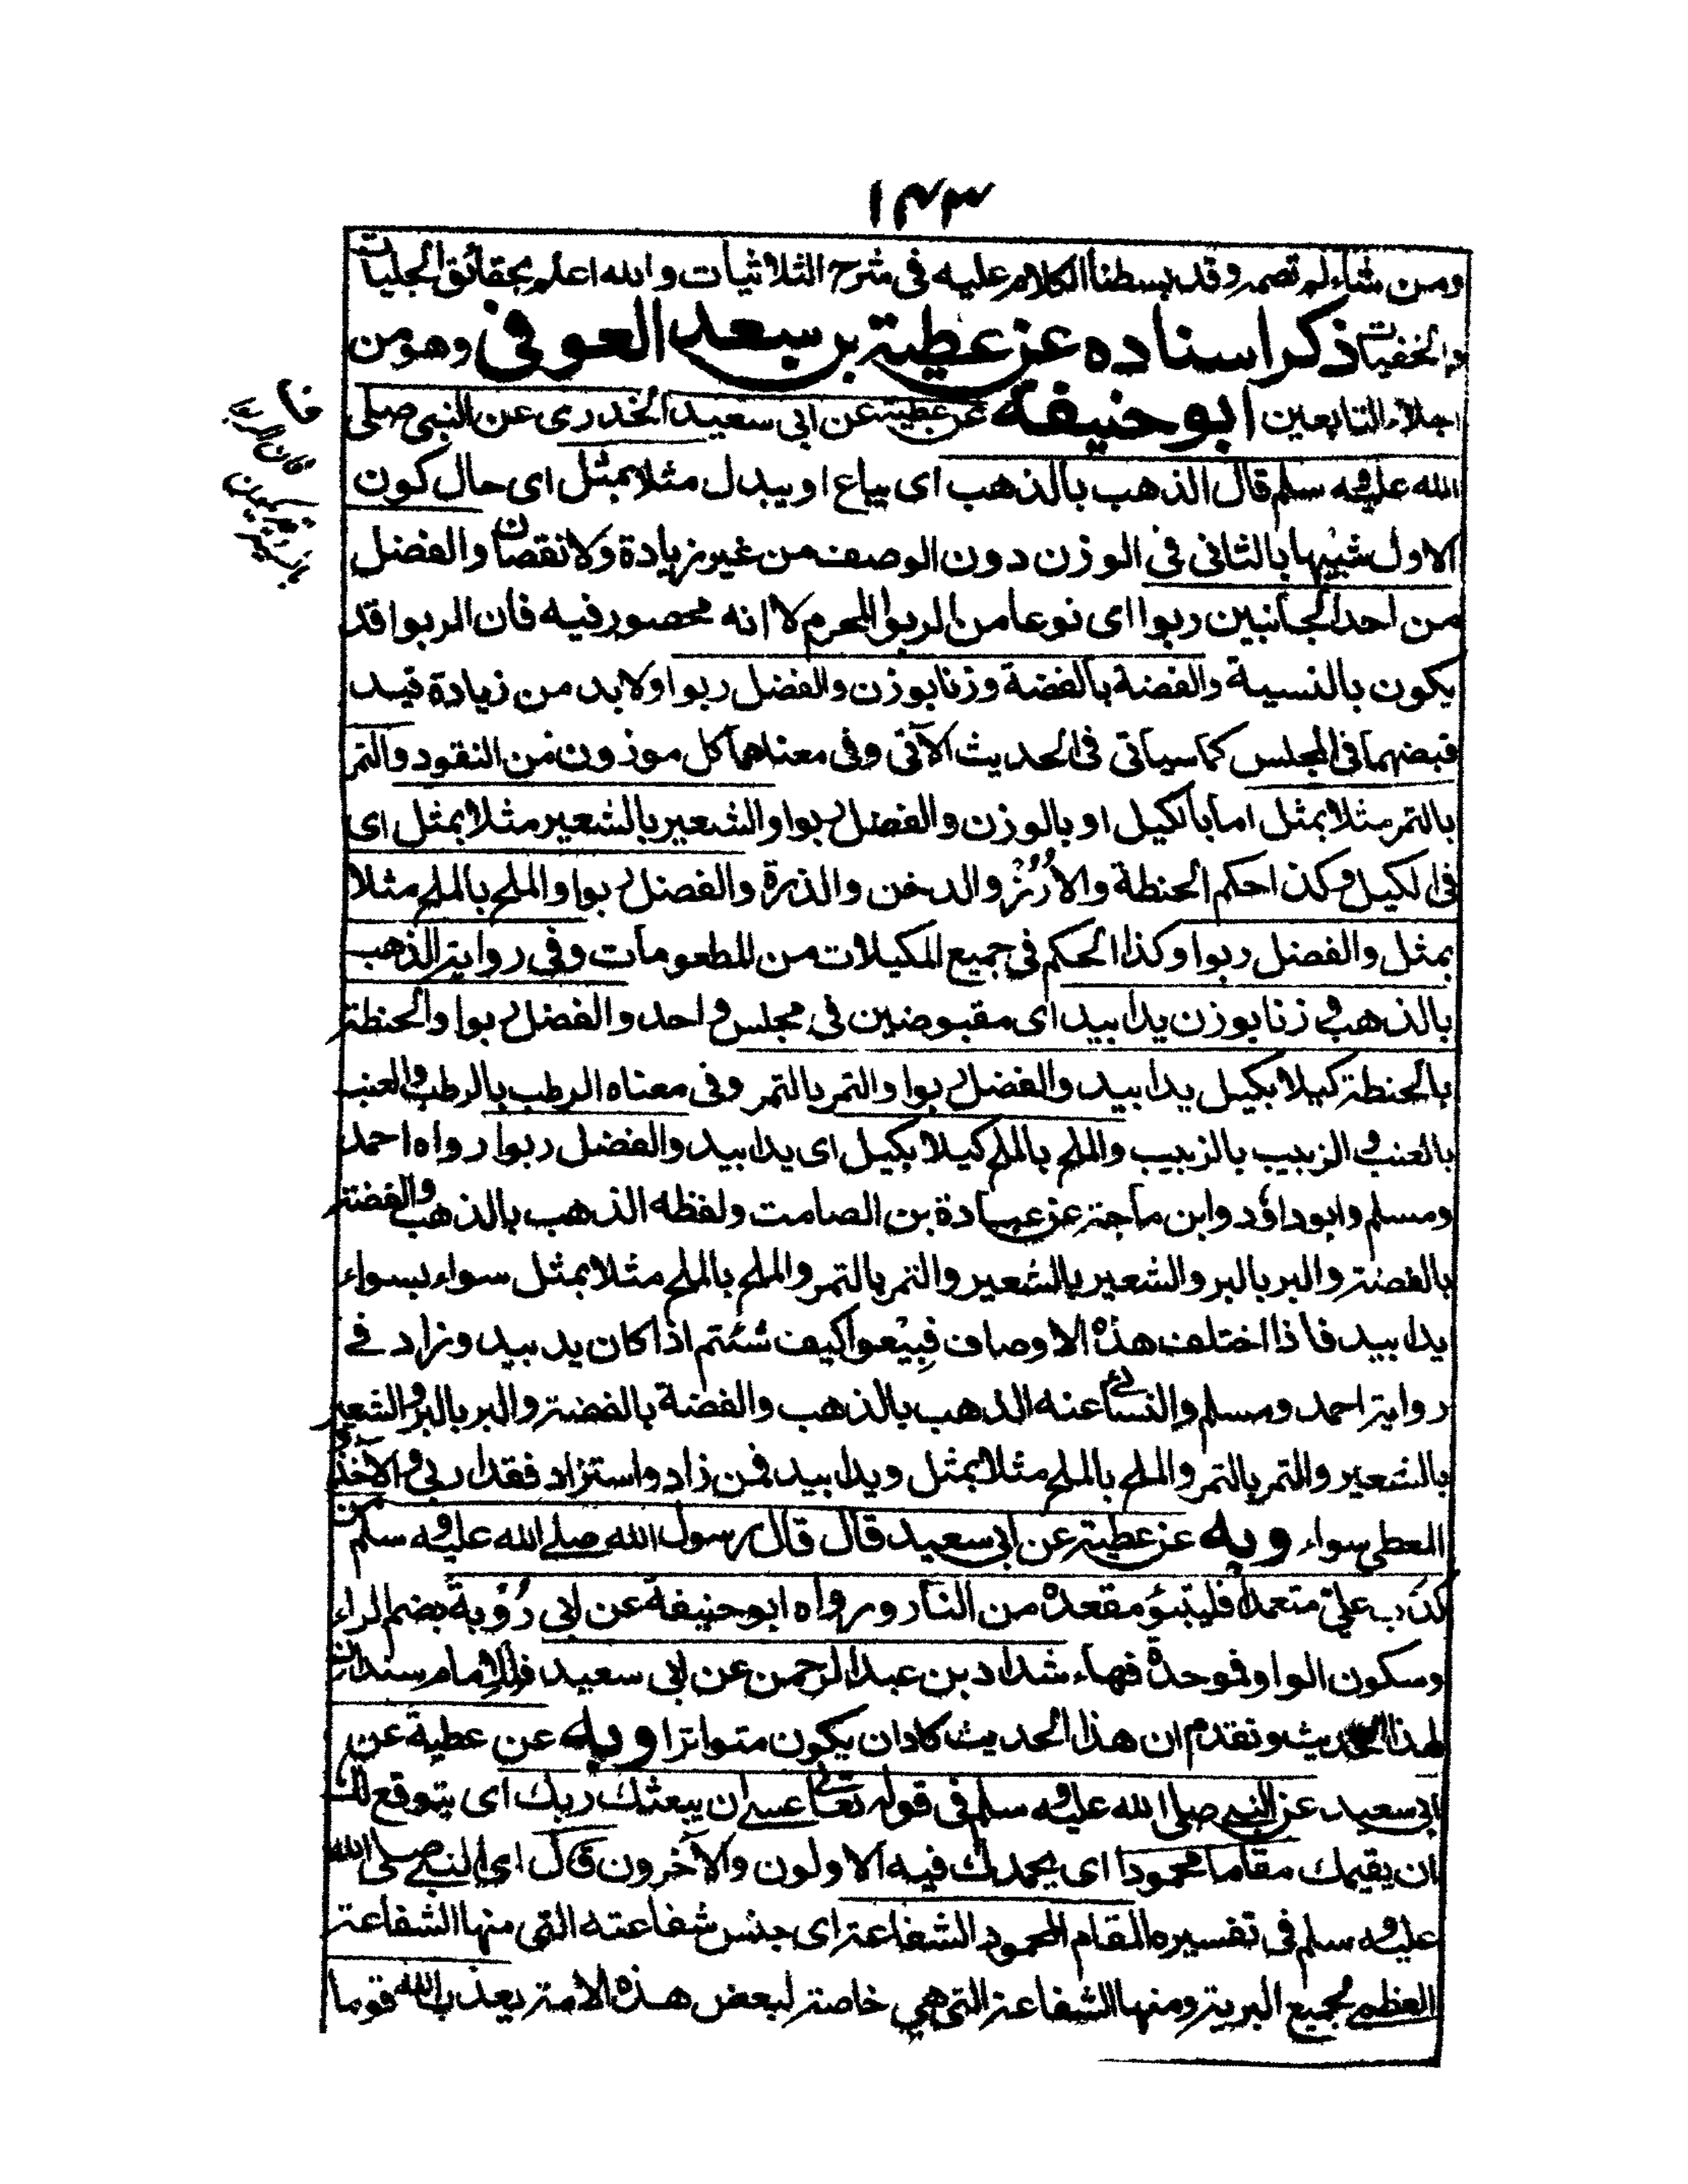 ١٤٣
ومن شاء لم تصمه وقد بسطنا الكلام عليه فى شرح الثلاثيات والله اعلم بحقائق الجليات
والخفيات ذكر اسناده عن عطية بن سعد العوفى وهو من
اجلاء التابعين ابو حنيفة عن عطية عن ابى سعيد الخدرى عن النبى صلى
الله عليه وسلم قال الذهب بالذهب اى يباع او يبدل مثلا بمثل اى حال كون
الاول شبيها بالثانى فى الوزن دون الوصف من غير زيادة ولا نقصان والفضل
من احد الجانبين ربوا اى نوعا من الربوا المحرم لا انه محصور فيه فان الربوا قد
يكون بالنسية والفضة بالفضة وزنا بوزن والفضل ربوا ولا بد من زيادة قيد
قبضهما فى المجلس كما سياتى فى الحديث الآتى وفى معناهما كل موزون من النقود والتمر
بالتمر مثلا بمثل اما بالكيل او بالوزن والفضل ربوا والشعير بالشعير مثلا بمثل اى
فى الكيل وكذا حكم الحنطة والارُزّ والدخن والذرة والفضل ربوا والملح بالملح مثلا
بمثل والفضل ربوا وكذا الحكم فى جميع المكيلات من المطعومات وفى رواية الذهب
بالذهب وزنا بوزن يدا بيد اى مقبوضين فى مجلس واحد والفضل ربوا والحنطة
بالحنطة كيلا بكيل يدا بيد والفضل ربوا والتمر بالتمر وفى معناه الرطب بالرطب والعنب
بالعنب والزبيب بالزبيب والملح بالملح كيلا بكيل اى يدا بيد والفضل ربوا رواه احمد
ومسلم وابو داؤد وابن ماجة عن عبادة بن الصامت ولفظه الذهب بالذهب والفضة
بالفضة والبر بالبر والشعير بالشعير والتمر بالتمر والملح بالملح مثلا بمثل سواء بسواء
يدا بيد فاذا اختلف هذه الاوصاف فبيعوا كيف شئتم اذا كان يد بيد وزاد فى
رواية احمد ومسلم والنسائى عنه الذهب بالذهب والفضة بالفضة والبر بالبر والشعير
بالشعير والتمر بالتمر والملح بالملح مثلا بمثل ويدا بيد فمن زاد واستزاد فقد اربى والآخذ و
المعطى سواء وبه عن عطية عن ابى سعيد قال قال رسول الله صلى الله عليه وسلم من
كذب علىّ متعمدا فليتبوّء مقعده من النار ورواه ابو حنيفة عن ابى رُؤبة بضم الراء
وسكون الواو فموحدة فهاء شداد بن عبد الرحمن عن ابى سعيد فللامام سندان
لهذا الحديث وتقدم ان هذا الحديث كاد ان يكون متواترا وبه عن عطية عن
ابى سعيد عن النبى صلى الله عليه وسلم فى قوله تعالى عسى ان يبعثك ربك اى يتوقع لك
ان يقيمك مقاما محمودا اى يحمدك فيه الاولون والآخرون قال اى النبى صلى الله
عليه وسلم فى تفسيره المقام المحمود الشفاعة اى جنس شفاعته التى منها الشفاعة
العظمى لجميع البرية ومنها الشفاعة التى هي خاصة لبعض هذه الامة يعذب الله قوما